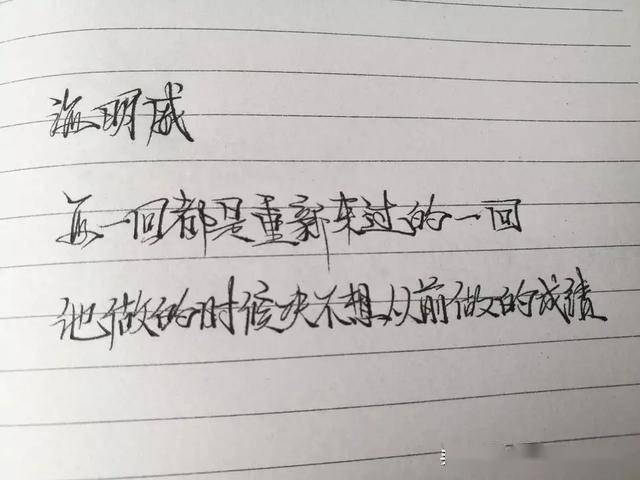 海明威
每一回都是重新来过的一回
他做的时候决不想从前做的成绩